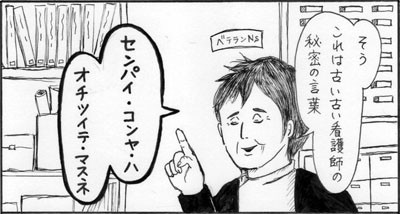 そう
これは古い古い看護師の
秘密の言葉
ベテランNS
センパイ・コンヤ・ハ
オチツイテ・マスネ